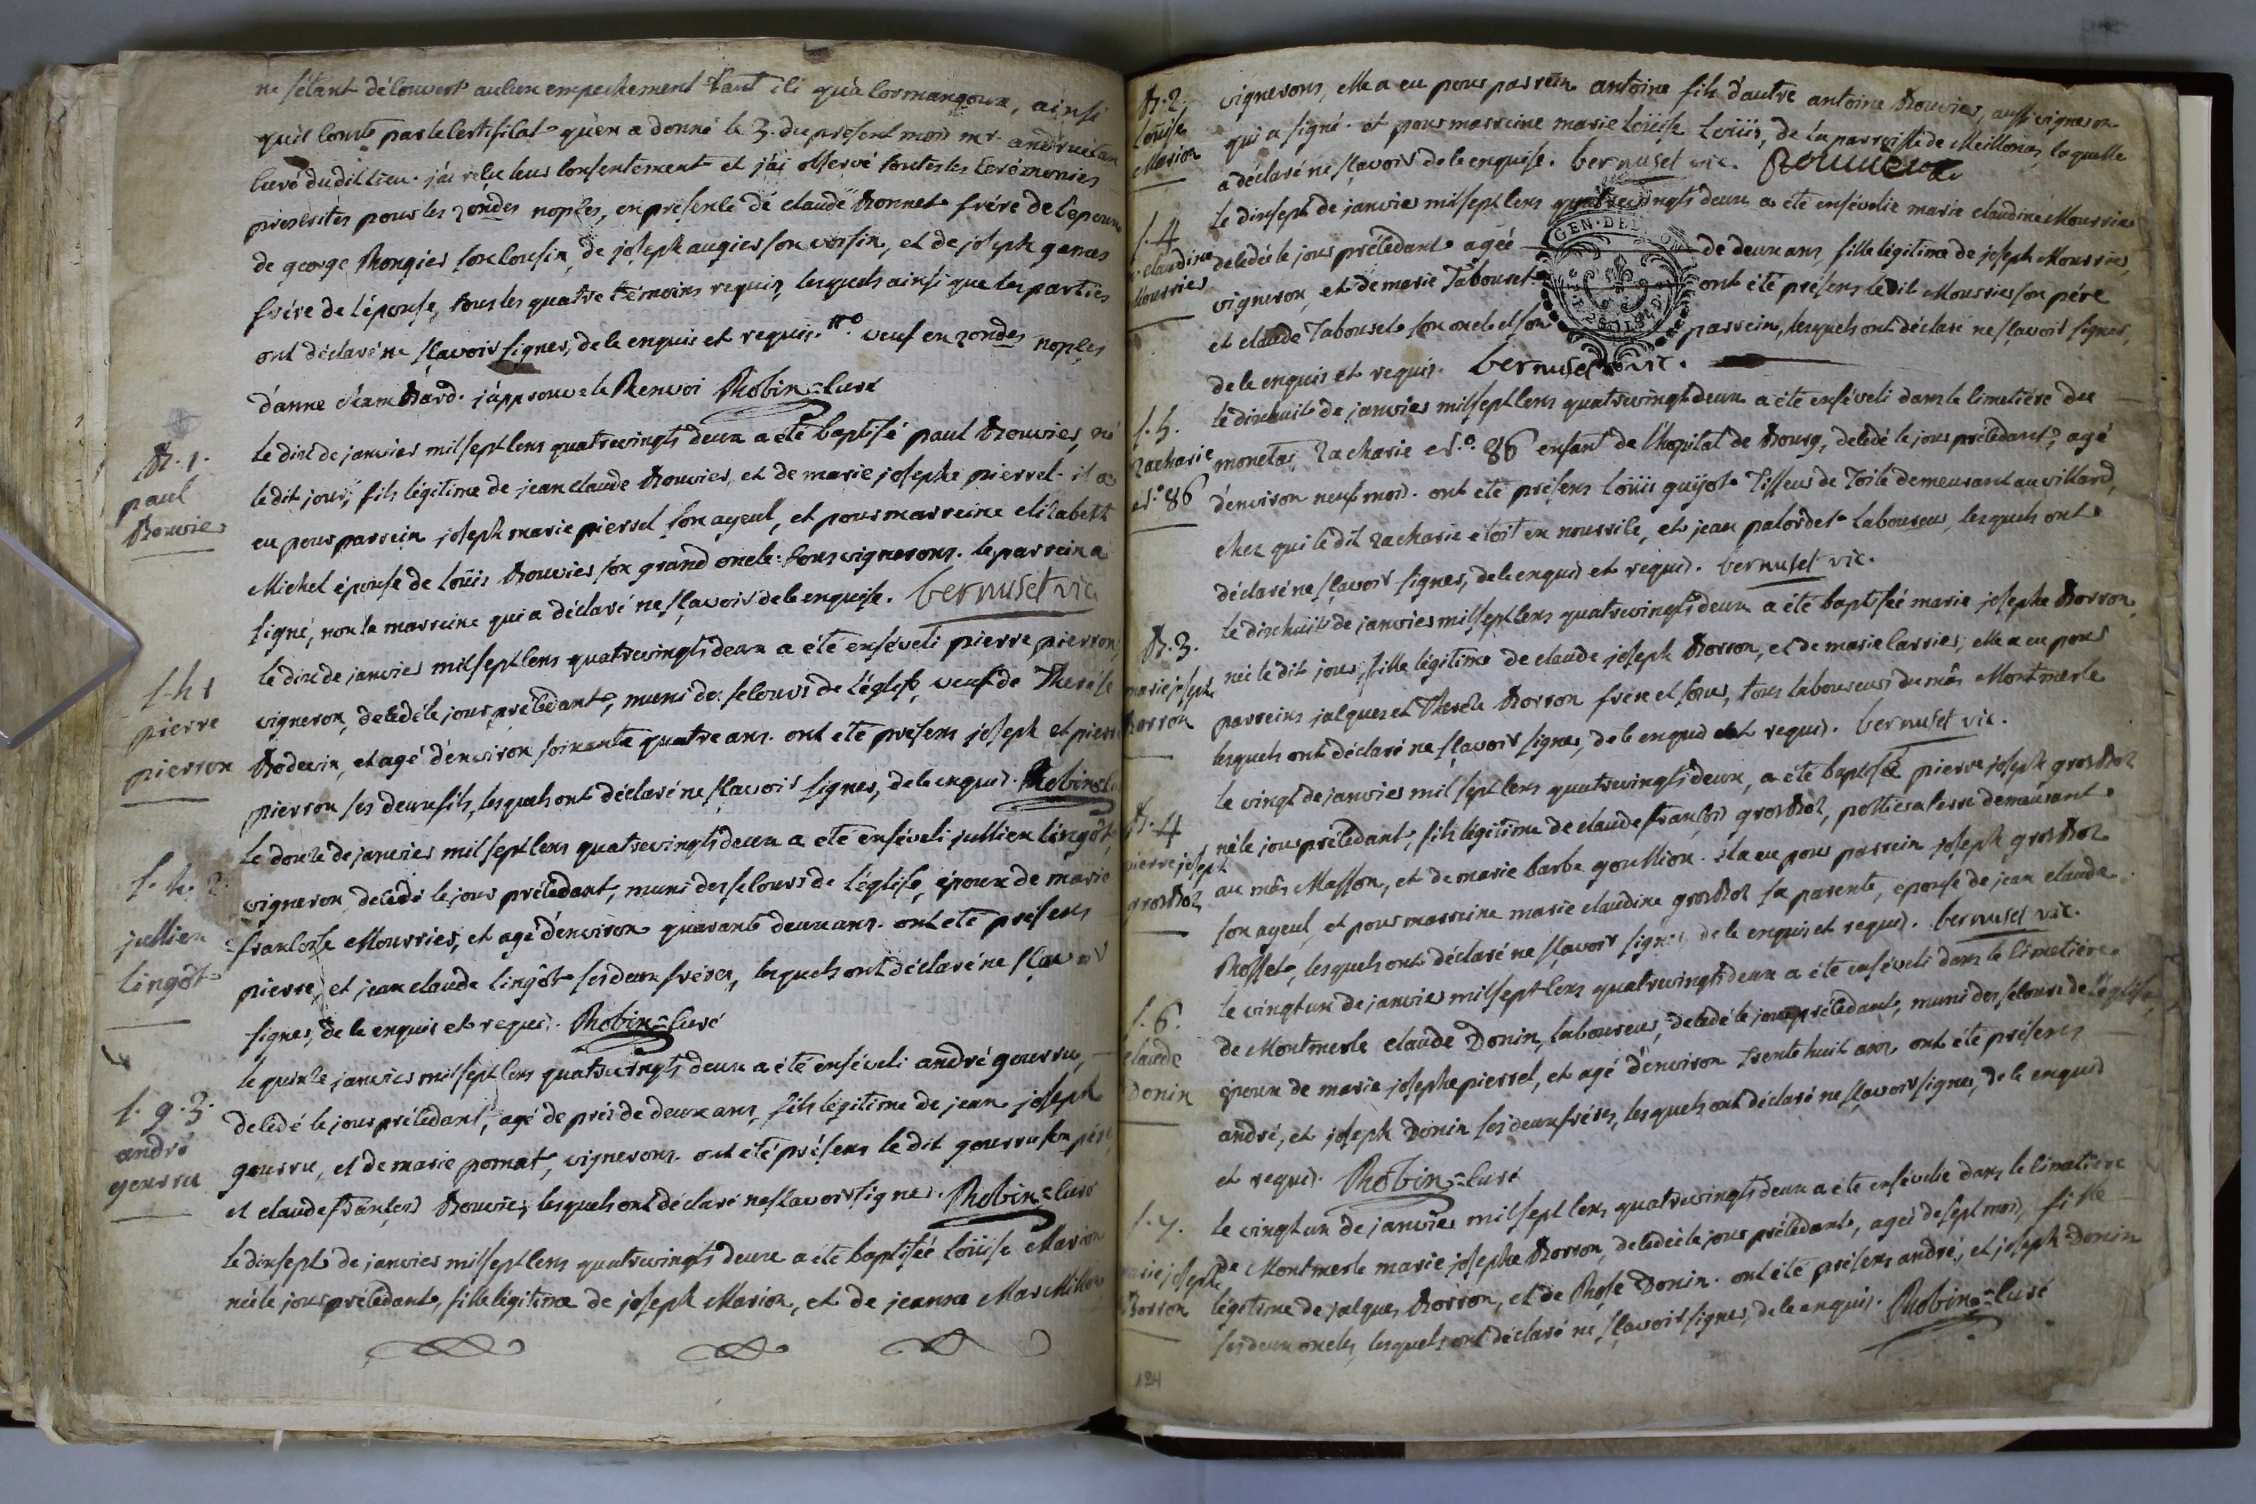 ne s'étant découvert aucun empechement tant ici qu'à cormangoux, ainsi
qu'il conste par le certificat qu'en a donné le 3. du present mois mr.
curé dudit lieu. j'ai reçu leur consentement et j'ai observé toutes les cérémonies
prescrites pour les noples, en présence de claude Bonnet frére de l'epoux
de george Rongier son cousin, de joseph augier son voisin, et de joseph
frére de l'épouse, tous les quatre témoins requis, lesquels ainsi que les parties
ont déclaré ne sçavoir signer, de ce enquis et requis. veuf en noples
d'anne Bard. j'approuve le Renvoi Robin = curé
B. 1.
paul
Bouvier
le dix de janvier mil sept cens quatrevingts deux a été baptisé paul Bouvier, né
le dit jour, fils légitime de jean claude Bouvier, et de marie josephe pierrel. il a
eu pour parrein joseph marie pierrel son ayeul, et pour marreine elizabeth
Michel épouse de loüis Bouvier son grand oncle. tous vignerons. le parrein a
signé, non la marreine qui a déclaré ne sçavoir de ce enquise. bernuset vic.
s. h 1
pierre
pierron
le dix de janvier mil sept cens quatrevingts deux a été enséveli pierre pierron,
vigneron, decédé le jour précédant, muni des secours de l'église, veuf de Therése
Boduin, et agé d'environ soixante quatre ans. ont été présens joseph et pierre
pierron ses deux fils, lesquels ont déclaré ne sçavoir signer, de ce enquis. Robin = curé
s. h. 2.
jullien
lingôt
le douze de janvier mil sept cens quatrevingts deux a été enséveli jullien lingôt,
vigneron, decédé le jour précédant, muni des secours de l'église, époux de marie
françoise Mourrier, et agé d'environ quarante deux ans. ont été présens
pierre, et jean claude lingôt ses deux fréres, lesquels ont déclaré ne sçavoir
signer, de ce enquis et requis. Robin = curé
s. g. 3.
andré
gourru
le quinze janvier mil sept cens quatrevingts deux a été enséveli andré gourru,
decédé le jour précédant, agé de prés de deux ans, fils légitime de jean joseph
gourru, et de marie pomat, vignerons. ont été présens le dit gourru son pére,
et claude françois Bouvier, lesquels ont déclaré ne sçavoir signer. Robin = curé
le dixsept de janvier mil sept cens quatrevingts deux a été baptisée loüise Marion
née le jour précédant, fille légitime de joseph Marion, et de jeanne
B. 2.
loüise
Marion
vignerons, elle a eu pour parrein antoine fils d'autre antoine Bouvier, aussi vigneron
qui a signé. et pour marreine marie loüise loüis, de la parroisse de Meillonas, laquelle
a déclaré ne sçavoir de ce enquise. bernuset vic. Bouvier
s. 4
m. claudine
Mourrier
le dixsept de janvier mil sept cens quatrevingts deux a été ensévelie marie claudine Mourrier
decédée le jour précédant agée de deux ans, fille légitime de joseph Mourrier,
vigneron, et de marie Tabouret. ont été présens ledit Mourrier son pére
et claude Tabouret son oncle et son parrein, lesquels ont déclaré ne sçavoir signer,
de ce enquis et requis. bernuset vic.
GEN. DE
s. 5.
zacharie
n.º 86
le dixhuit de janvier mil sept cens quatrevingt deux a été enséveli dans le cimetiére du
monetay zacharie n.º 86 enfant de l'hopital de Bourg, decédé le jour précédant, agé
d'environ neuf mois. ont été présens loüis guÿot Tisseur de Toile demeurant au villard,
chez qui le dit zacharie étoit en nourrice, et jean palordet laboureur, lesquels ont
déclaré ne sçavoir signer, de ce enquis et requis. bernuset vic.
B. 3.
marie joseph
Borron
le dixhuit de janvier mil sept cens quatrevingts deux a été baptisée marie josephe Borron,
née le dit jour, fille légitime de claude joseph Borron, et de marie carrier, elle a eu pour
parreins jacques et Therése Borron frére et sœur, tous laboureurs du mâs Montmerle
lesquels ont déclaré ne sçavoir signer, de ce enquis et requis. bernuset vic.
B. 4
pierre joseph
grosBoz
le vingt de janvier mil sept cens quatrevingts deux, a été baptisé pierre joseph grosBoz
né le jour précédant, fils légitime de claude françois grosBoz, pottier a terre demeurant
au mâs Masson, et de marie barbe goullion. il a eu pour parrein joseph grosBoz
son ayeul, et pour marreine marie claudine grosBoz sa parente, épouse de jean claude
Rosset, lesquels ont déclaré ne sçavoir signer de ce enquis et requis. bernuset vic.
s. 6.
claude
Donin
le vingtun de janvier mil sept cens quatrevingts deux a été enséveli dans le cimetiére
de Montmerle claude Donin, laboureur, decédé le jour précédant, muni des secours de l'église,
époux de marie josephe pierrel, et agé d'environ trente huit ans, ont été présens
andré, et joseph Donin ses deux fréres, lesquels ont déclaré ne sçavoir signer, de ce enquis
et requis. Robin = curé
s. 7.
marie josephe
Borron
le vingtun de janvier mil sept cens quatrevingts deux a été ensévelie dans le cimetiére
de Montmerle marie josephe Borron, decédée le jour précédant, agée de sept mois, fille
légitime de jacques Borron, et de Rose Donin. ont été présens andré, et joseph Donin
ses deux oncles, lesquels ont déclaré ne sçavoir signer, de ce enquis. Robin = curé
124